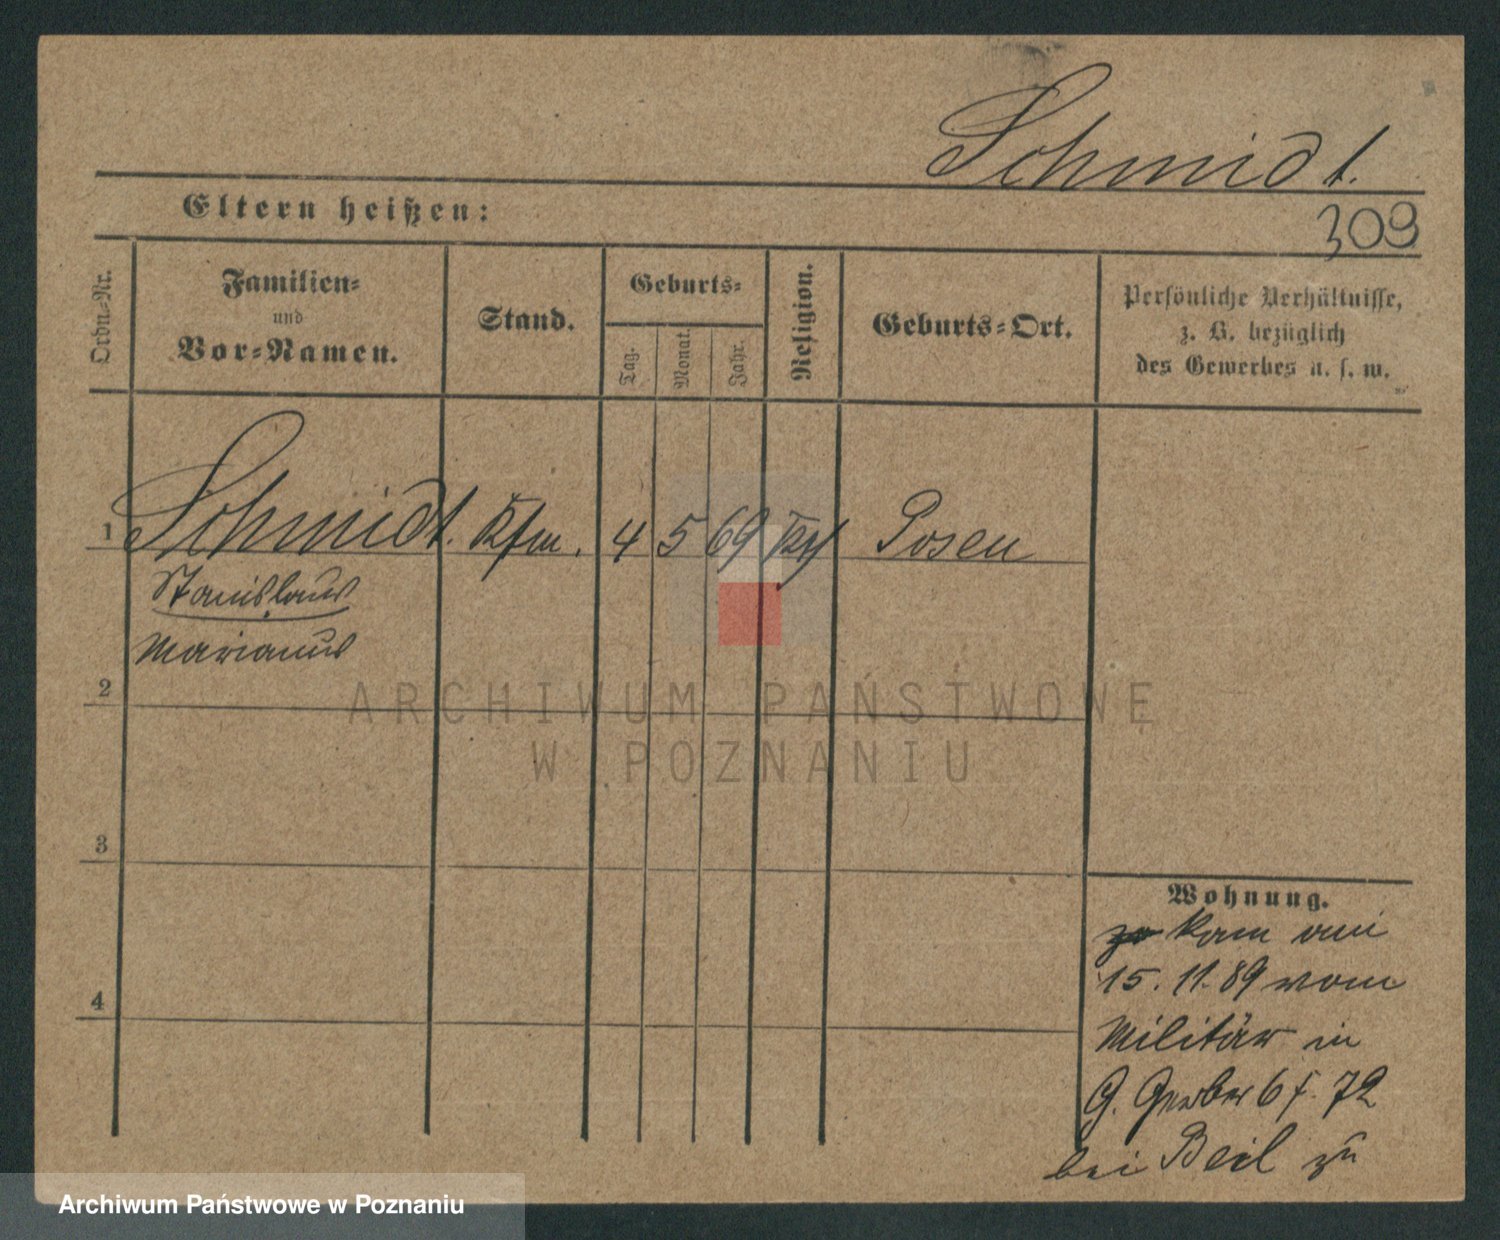 Schmidt.
Eltern heißen:
309
Ordn.=Nr.
Familien=
und
Vor=Namen.
Stand.
Geburts=
Tag.
Monat.
Jahr.
Religion.
Geburts=Ort.
Persönliche Verhältnisse,
z. B. bezüglich
des Gewerbes u. s. w.
1 Schmidt. Kfm. 4 5 69 Posen
Stanislaus
Marianus
2
ARCHIWUM PAŃSTWOWE
W POZNANIU
3
Wohnung.
kam am
15. 11. 89 vom
4
Militär in
G. Gerber 6 f. 72
bei Beil zu
Archiwum Państwowe w Poznaniu